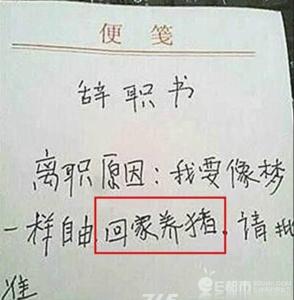 便笺
辞职书
离职原因：我要像梦
一样自由，回家养猪。请批
准
E都市